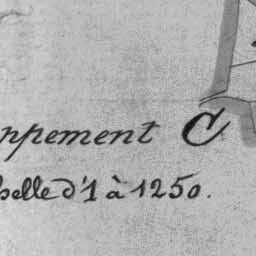 ppement C
helle d'1 à 1250.